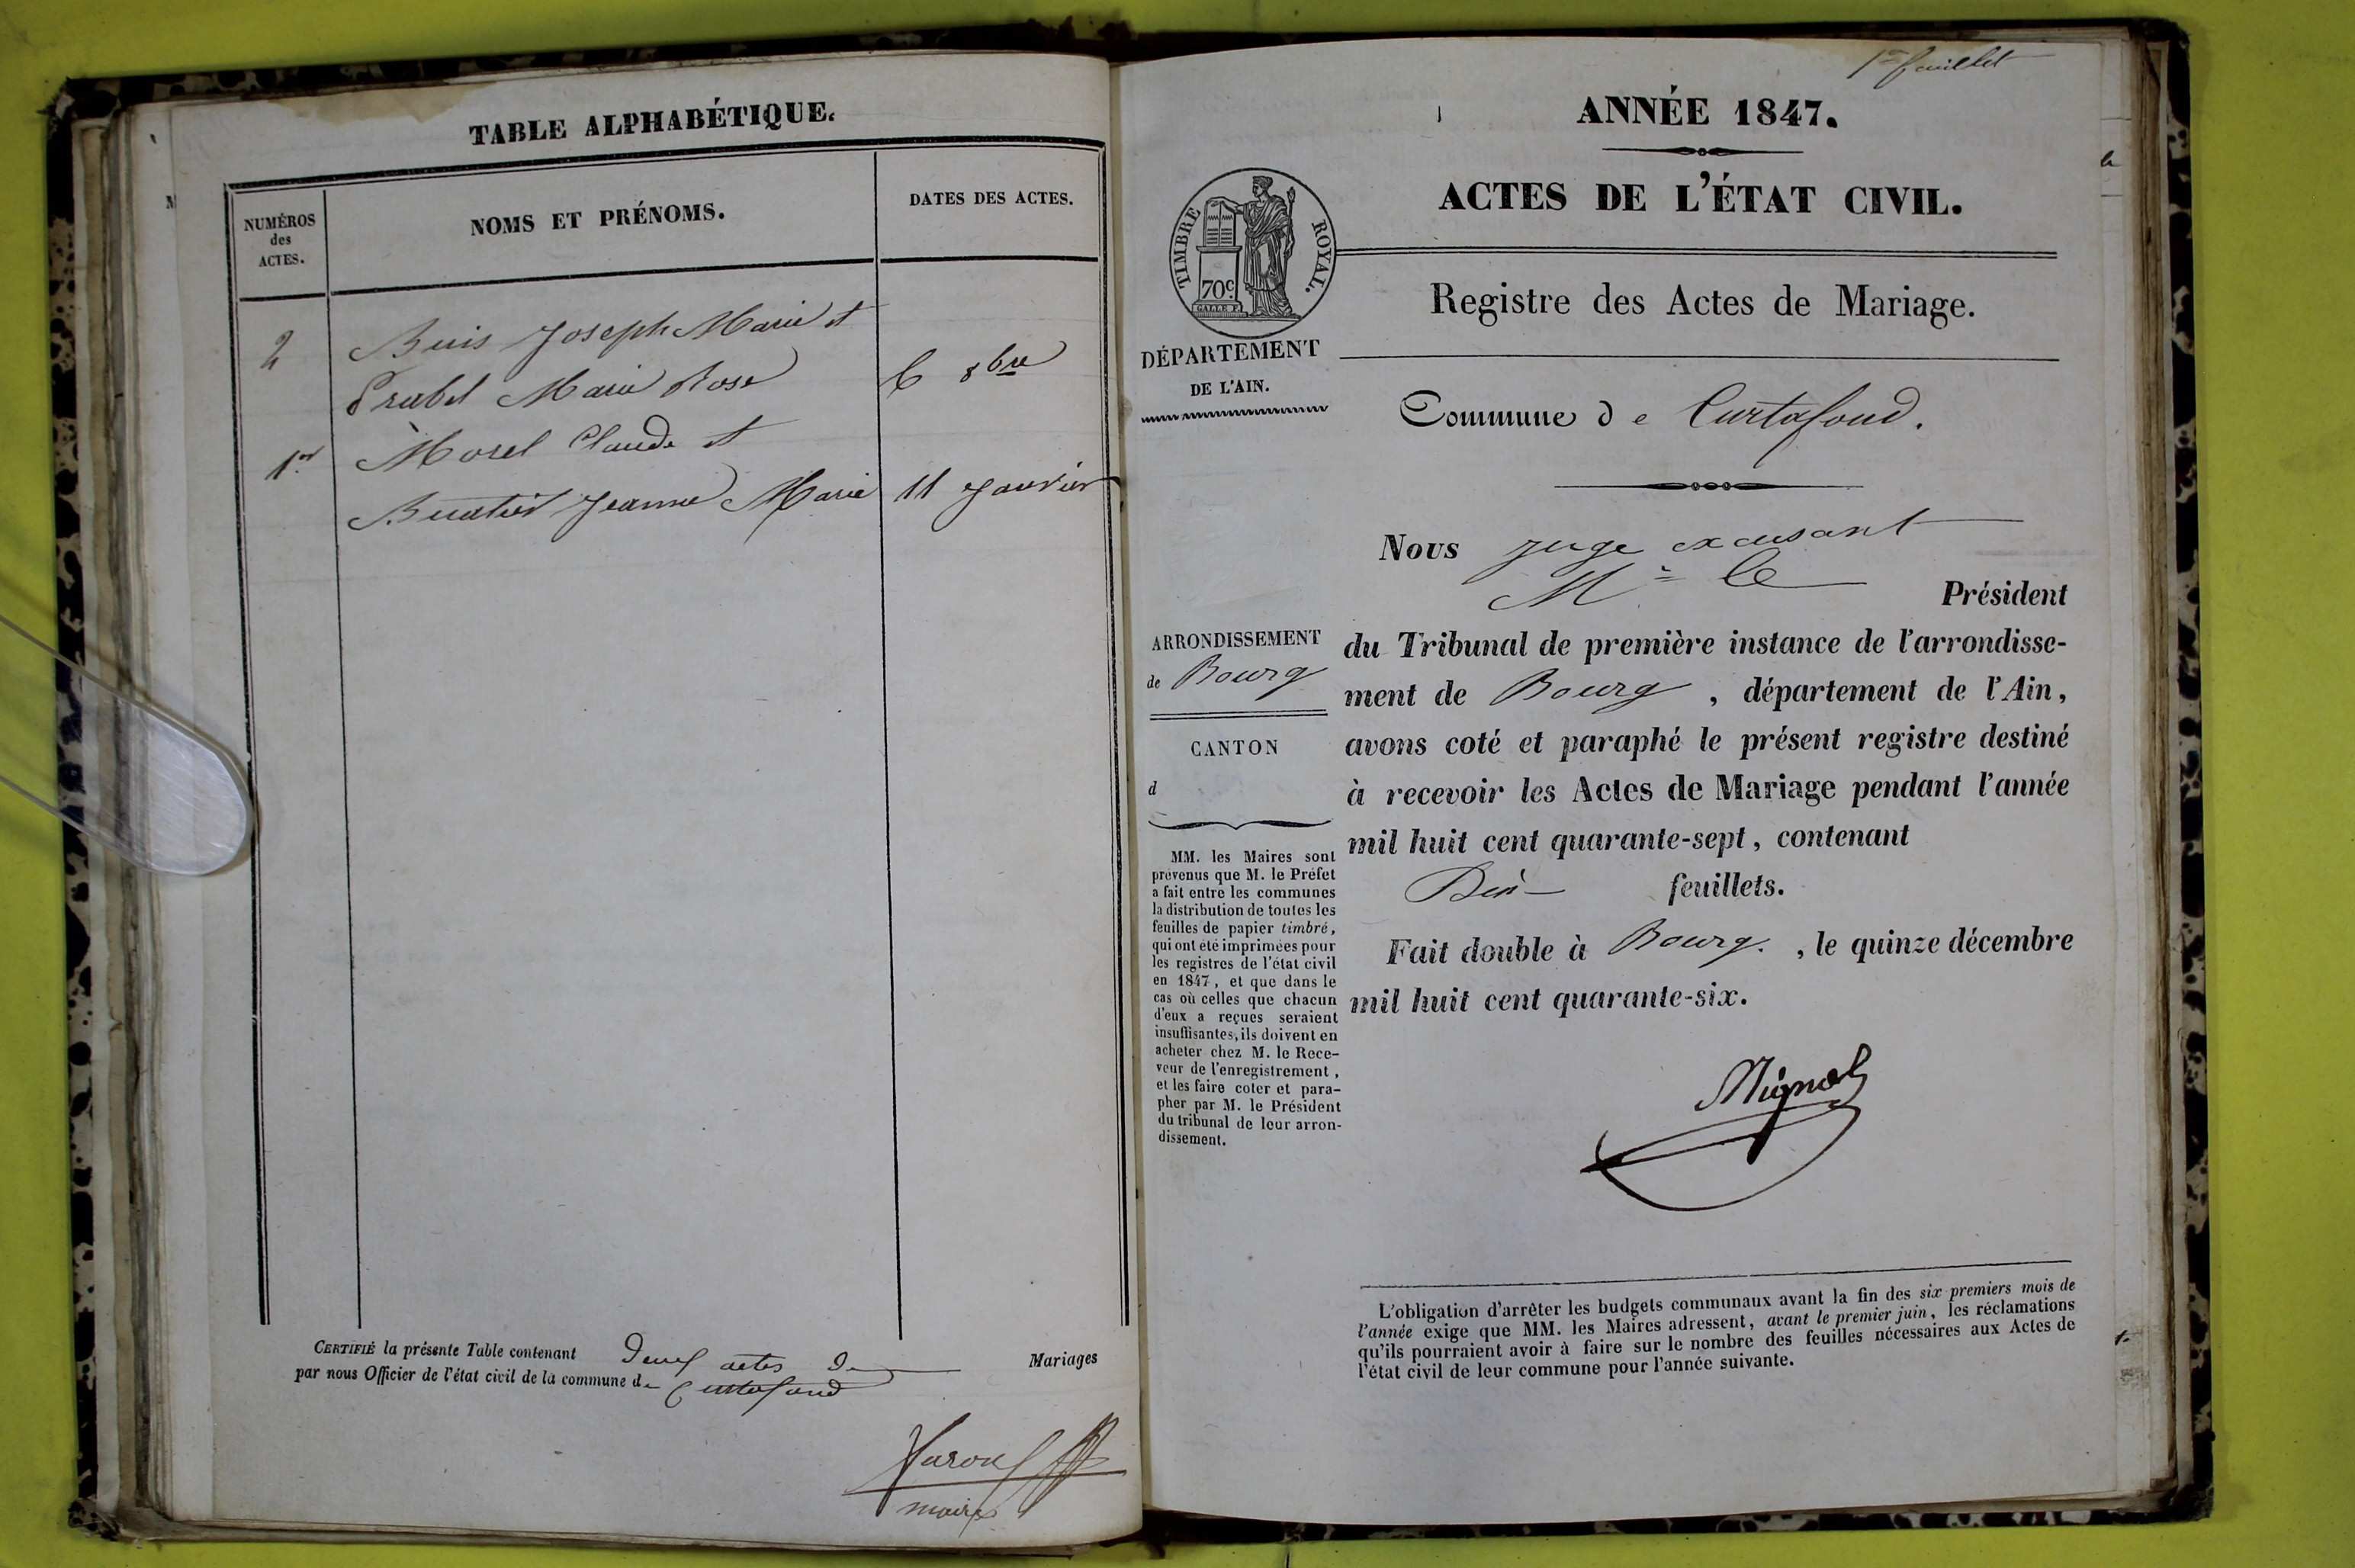 TABLE ALPHABÉTIQUE.
NUMÉROS
des
ACTES.
NOMS ET PRÉNOMS.
DATES DES ACTES.
2
Buis Joseph Marie et
Marie Rose
6 8bre
1er
Morel Claude et
Jeanne Marie
11 Janvier
CERTIFIÉ la présente Table contenant deux actes de Mariages
par nous Officier de l'état civil de la commune de Curtafond
maire
1er feuillet
ANNÉE 1847.
ACTES DE L'ÉTAT CIVIL.
TIMBRE ROYAL.
70c.
Registre des Actes de Mariage.
DÉPARTEMENT
DE L'AIN.
Commune de Curtafond.
Nous juge excusant
Mr le
Président
ARRONDISSEMENT
de Bourg
CANTON
d
MM. les Maires sont
prévenus que M. le Préfet
a fait entre les communes
la distribution de toutes les
feuilles de papier timbré,
qui ont été imprimées pour
les registres de l'état civil
en 1847, et que dans le
cas où celles que chacun
d'eux a reçues seraient
insuffisantes, ils doivent en
acheter chez M. le Rece-
veur de l'enregistrement,
et les faire coter et para-
pher par M. le Président
du tribunal de leur arron-
dissement.
du Tribunal de première instance de l'arrondisse-
ment de Bourg, département de l'Ain,
avons coté et paraphé le présent registre destiné
à recevoir les Actes de Mariage pendant l'année
mil huit cent quarante-sept, contenant
Dix feuillets.
Fait double à Bourg., le quinze décembre
mil huit cent quarante-six.
L'obligation d'arrêter les budgets communaux avant la fin des six premiers mois de
l'année exige que MM. les Maires adressent, avant le premier juin, les réclamations
qu'ils pourraient avoir à faire sur le nombre des feuilles nécessaires aux Actes de
l'état civil de leur commune pour l'année suivante.